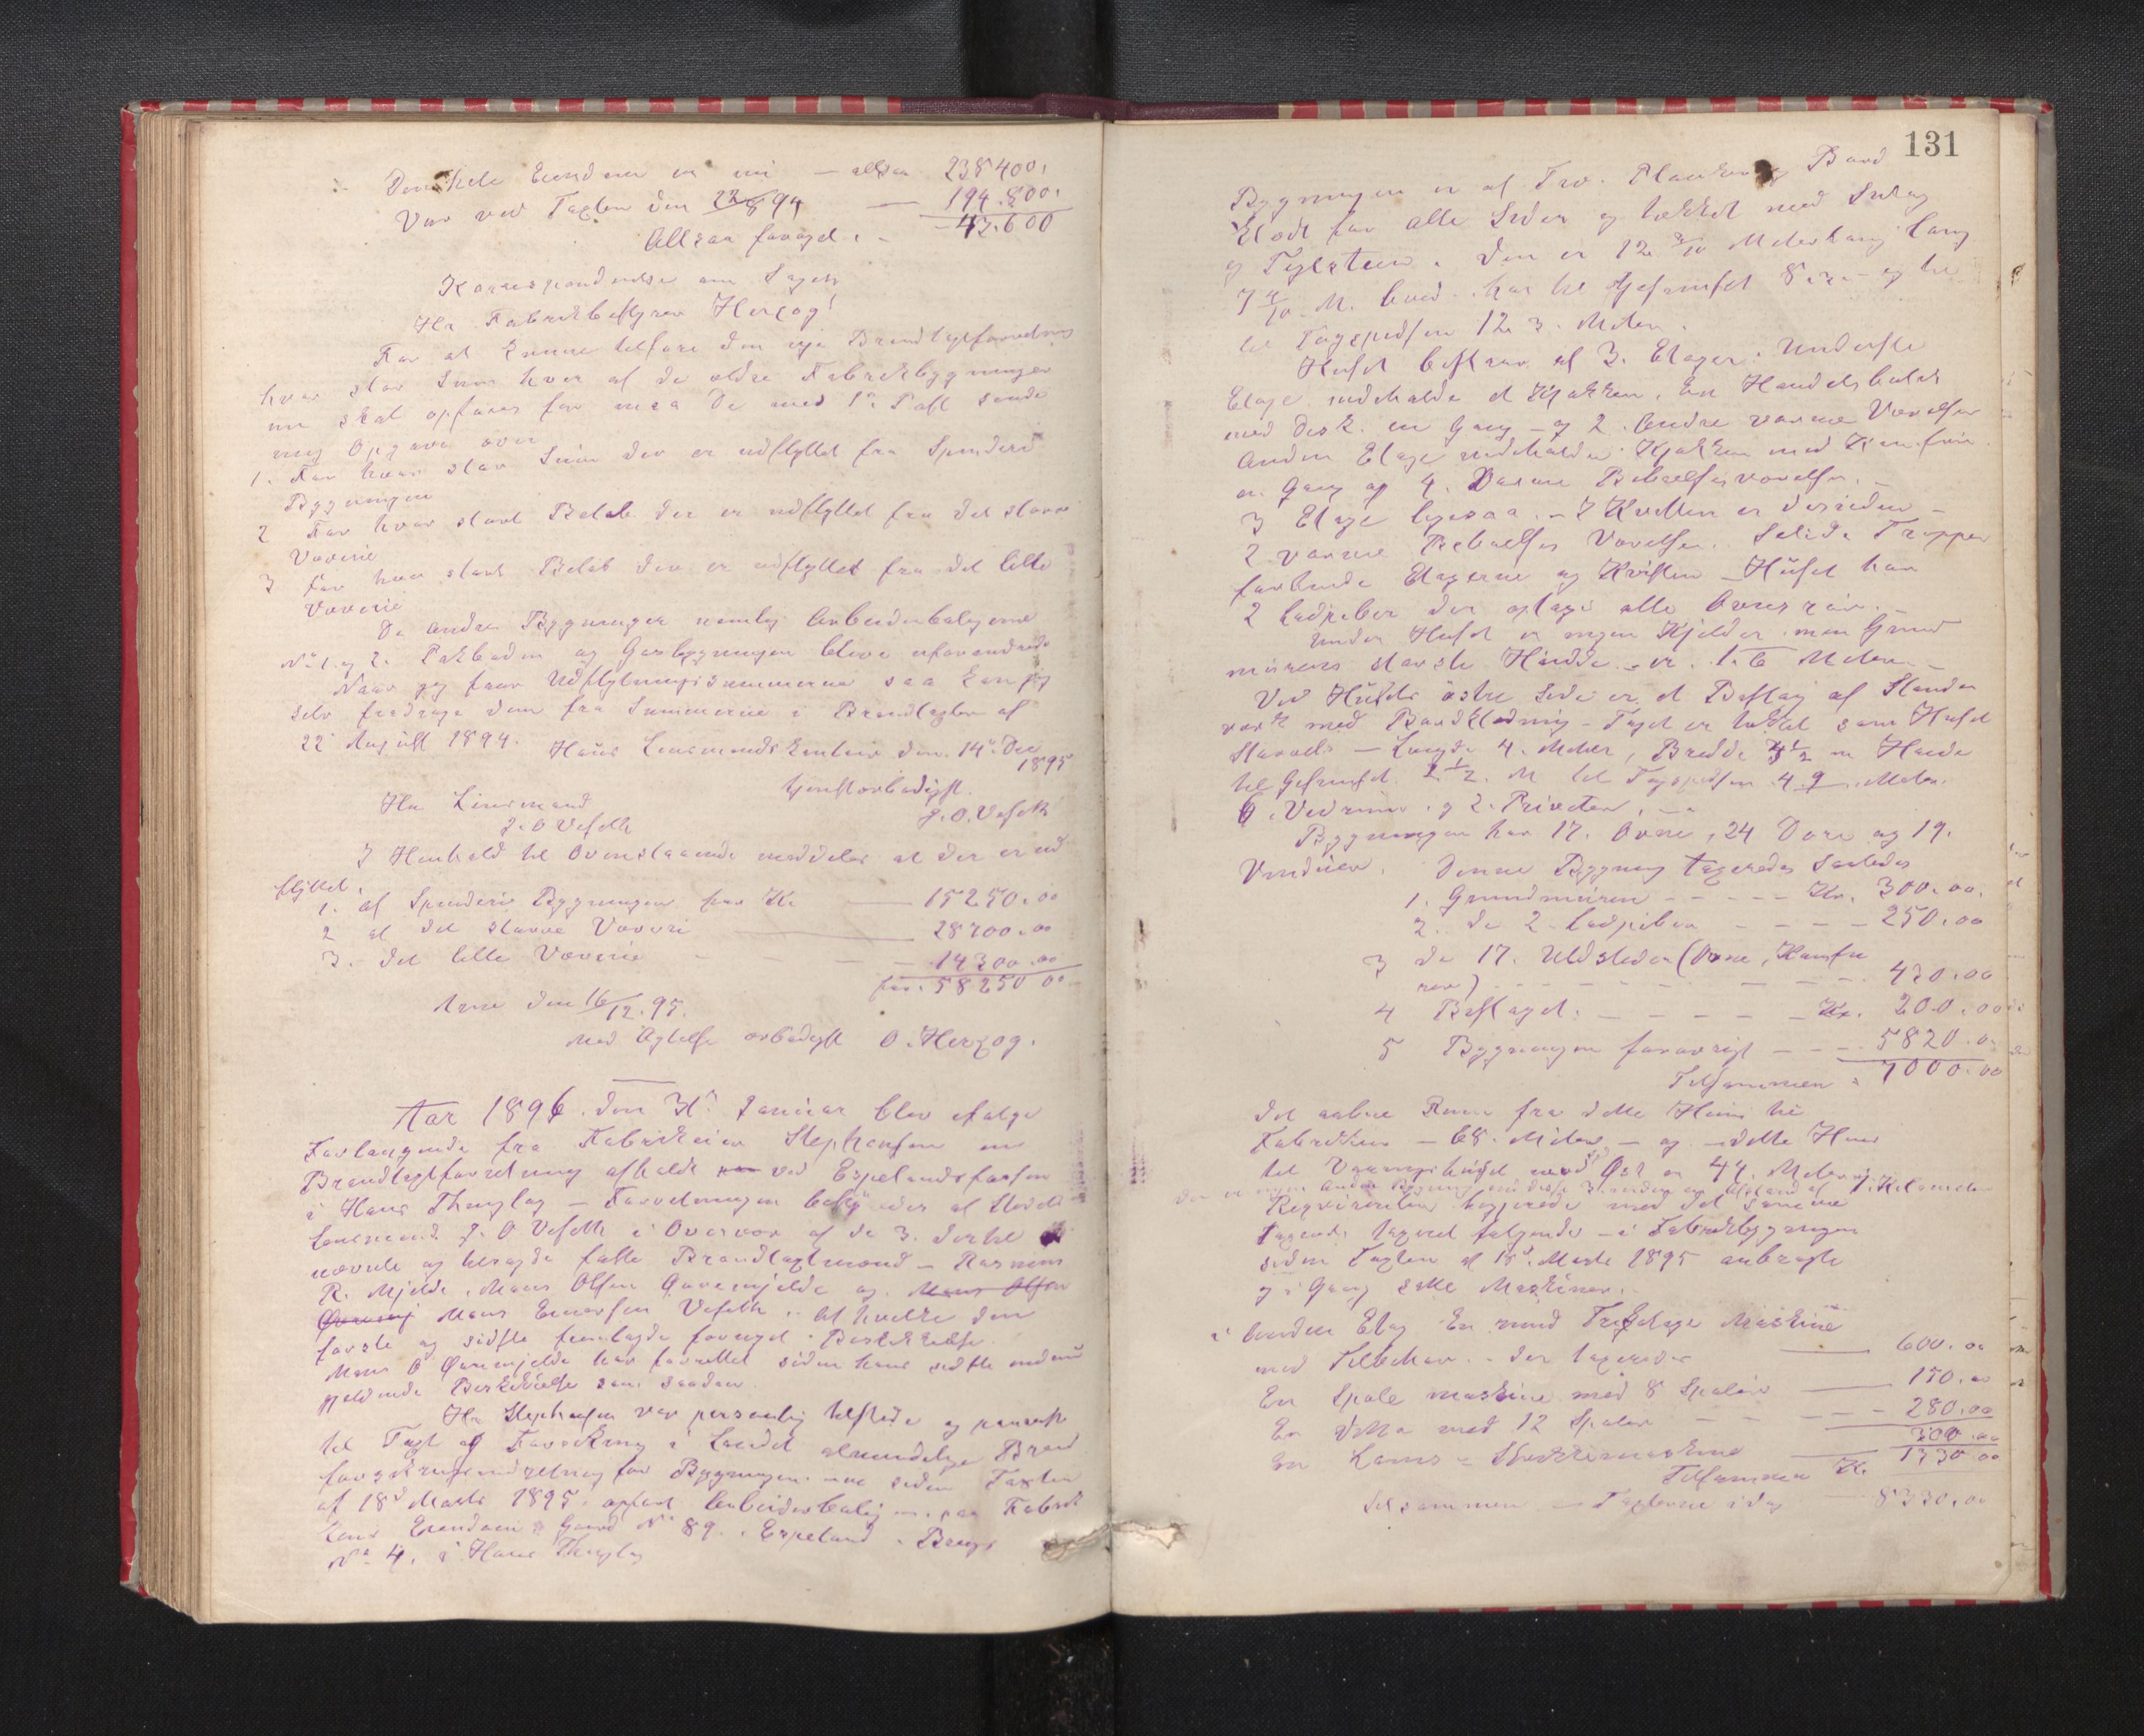 Den hele Eiendom er nu – altsaa 238400,
Var ved Taxten den 22/8 94 — 194.800,
Altsaa forøget – 43.600
Korrespondense om Sagen
Hr Fabrikbestyrer Herzog!
For at kunne tilføre den nye Brandtaxtforretning
hvor stor Sum hver af de ældre Fabrikbygninger
nu skal opføres for maa De med 1ste Post sende
mig Opgave over
1. For hvor stor Sum der er udflyttet fra Spinderi
Bygningen
2 For hvor stort Beløb der er udflyttet fra det store
Væverie
3 for hvor stort Beløb der er udflyttet fra det lille
Væverie
De andre Bygninger nemlig Arbeiderboligerne
No 1 og 2. Pakboden og Gasbygningen blive uforandrede
Naar jeg faar Udflytningssummerne saa kan jeg
selv fradrage dem fra Summerne i Brandtaxten af
22 August 1894. Haus Lensmandskontoir den 14de Dec
1895
Tjenstærbødigst.
Hr Lensmand J.O. Veseth
J. O Veseth
I Henhold til Ovenstaaende meddeles at der er ud
flyttet.
1. af Spinderie Bygningen for Kr — 15250.00
2 af det storre Væveri — 28700.00
3. det lille Væverie – – – 14300.00
58250 00
Arne den 16/12. 95.
med Agtelse ærbødigst O. Herzog.
Aar 1896. den 31te Januar blev efter
Forlangende fra Fabrikeier Stephansen en
Brandtaxtforretning afholdt ved Espelandsfossen
i Haus Thinglag – Forretningen af Stedets
Lensmand J. O Veseth i Overvær af de 3. dertil
nævnte og faste Brandtaxtmænd – Rasmus
R. Mjelde, Mons Olsen Garemjelde og Mons Olsen
Mons Einarsen Veseth .. Af hvilke den
første og sidste fremlagde fornyet Beskikkelse.
Mons O Garemjelde har forevist siden hans sidste endnu
gjeldende Beskikkelse som saadan
Hr Stephansen var personlig tilstede og
til Taxt og Forsikring i Landets almindelige Brand
forsikringsindretning for Bygningen siden Taxten
af 18de Marts 1895. opført Arbeiderbolig paa Fabrik
kens Eiendom Gaard No 89. Espeland. Brugs
No 4. i Haus Thinglag
131
Bygningen er af Træ. Planker og Bord
klædt for alle Sider og tækket med Sutag
og Teglsteen. Den er 12 3/10 Meter lang
7 4/10 M. bred. har til Gesimset 8 og til
til Tagspidsen 12. 3. Meter.
Huset bestaar af 3. Etager. Underste
Etage indeholder et Kjøkken, En Handelsbutik
med Disk. en Gang – og 2. Andre varme Værelser
Anden Etage indeholder Kjøkken med Komfur
en Gang og 4. Varme Beboelsesværelser. –
3 Etage ligesaa. – I Kvisten er desuden –
2 varme Beboelses Værelser. Solide Trapper
forbinde Etagerne og Kvisten – Huset har
2 Ladpiber der optage alle Ovnsrør. –
Under Huset er ingen Kjelder men Grund
murens største Høide – er 1.6 Meter. –
Ved Husets østre Side er et Beslag af Stender
værk med Bordklædning – Taget er tækket som Huset
Størrels – Længde 4. Meter, Bredde 3 1/2 m Høide
til Gesimset 2 1/2. M til Tagspidsen 4.9. Meter.
6. Vedrum og 2. Priveter. –
Bygningen har 17. Ovne, 24 Døre og 19.
Vinduer. Denne Bygning taxeredes saaledes
1. Grundmuren – – – – – Kr. 300.00.
2. De 2 Ladpiber – – – – 250.00
3 De 17. Ildsteder (Ovne, Komfu
rer) – – – – – – – 430.00
4 Beslaget. – – – – – Kr. 200.00
5 Bygningen forøvrigt – – – 5820.00
Tilsammen 7000.00
Det aabne Rum fra dette Huus til
Fabrikken – 68. Meter – og – dette Huus
til Vaaningshuset mod Øst er 47. Meter
Der er ingen anden Bygning end disse en Afstand af 1. Kilometer
Rekvirenten begjærede med det samme
taxeret følgende – i Fabrikbygningen
siden Taxten af 18de Marts 1895 anbragte
og i Gang satte Maskiner.
i Anden Etag En rund Maskine
med Tilbehør. – der taxeredes — 600.00
En Spole maskine med 8 Spoler — 150.00
En ditto med 12 Spoler – – – – 280.00
En – 300.00
Tilsammen Kr. 1330 00
Tilsammen – Taxterne idag – 8330.00